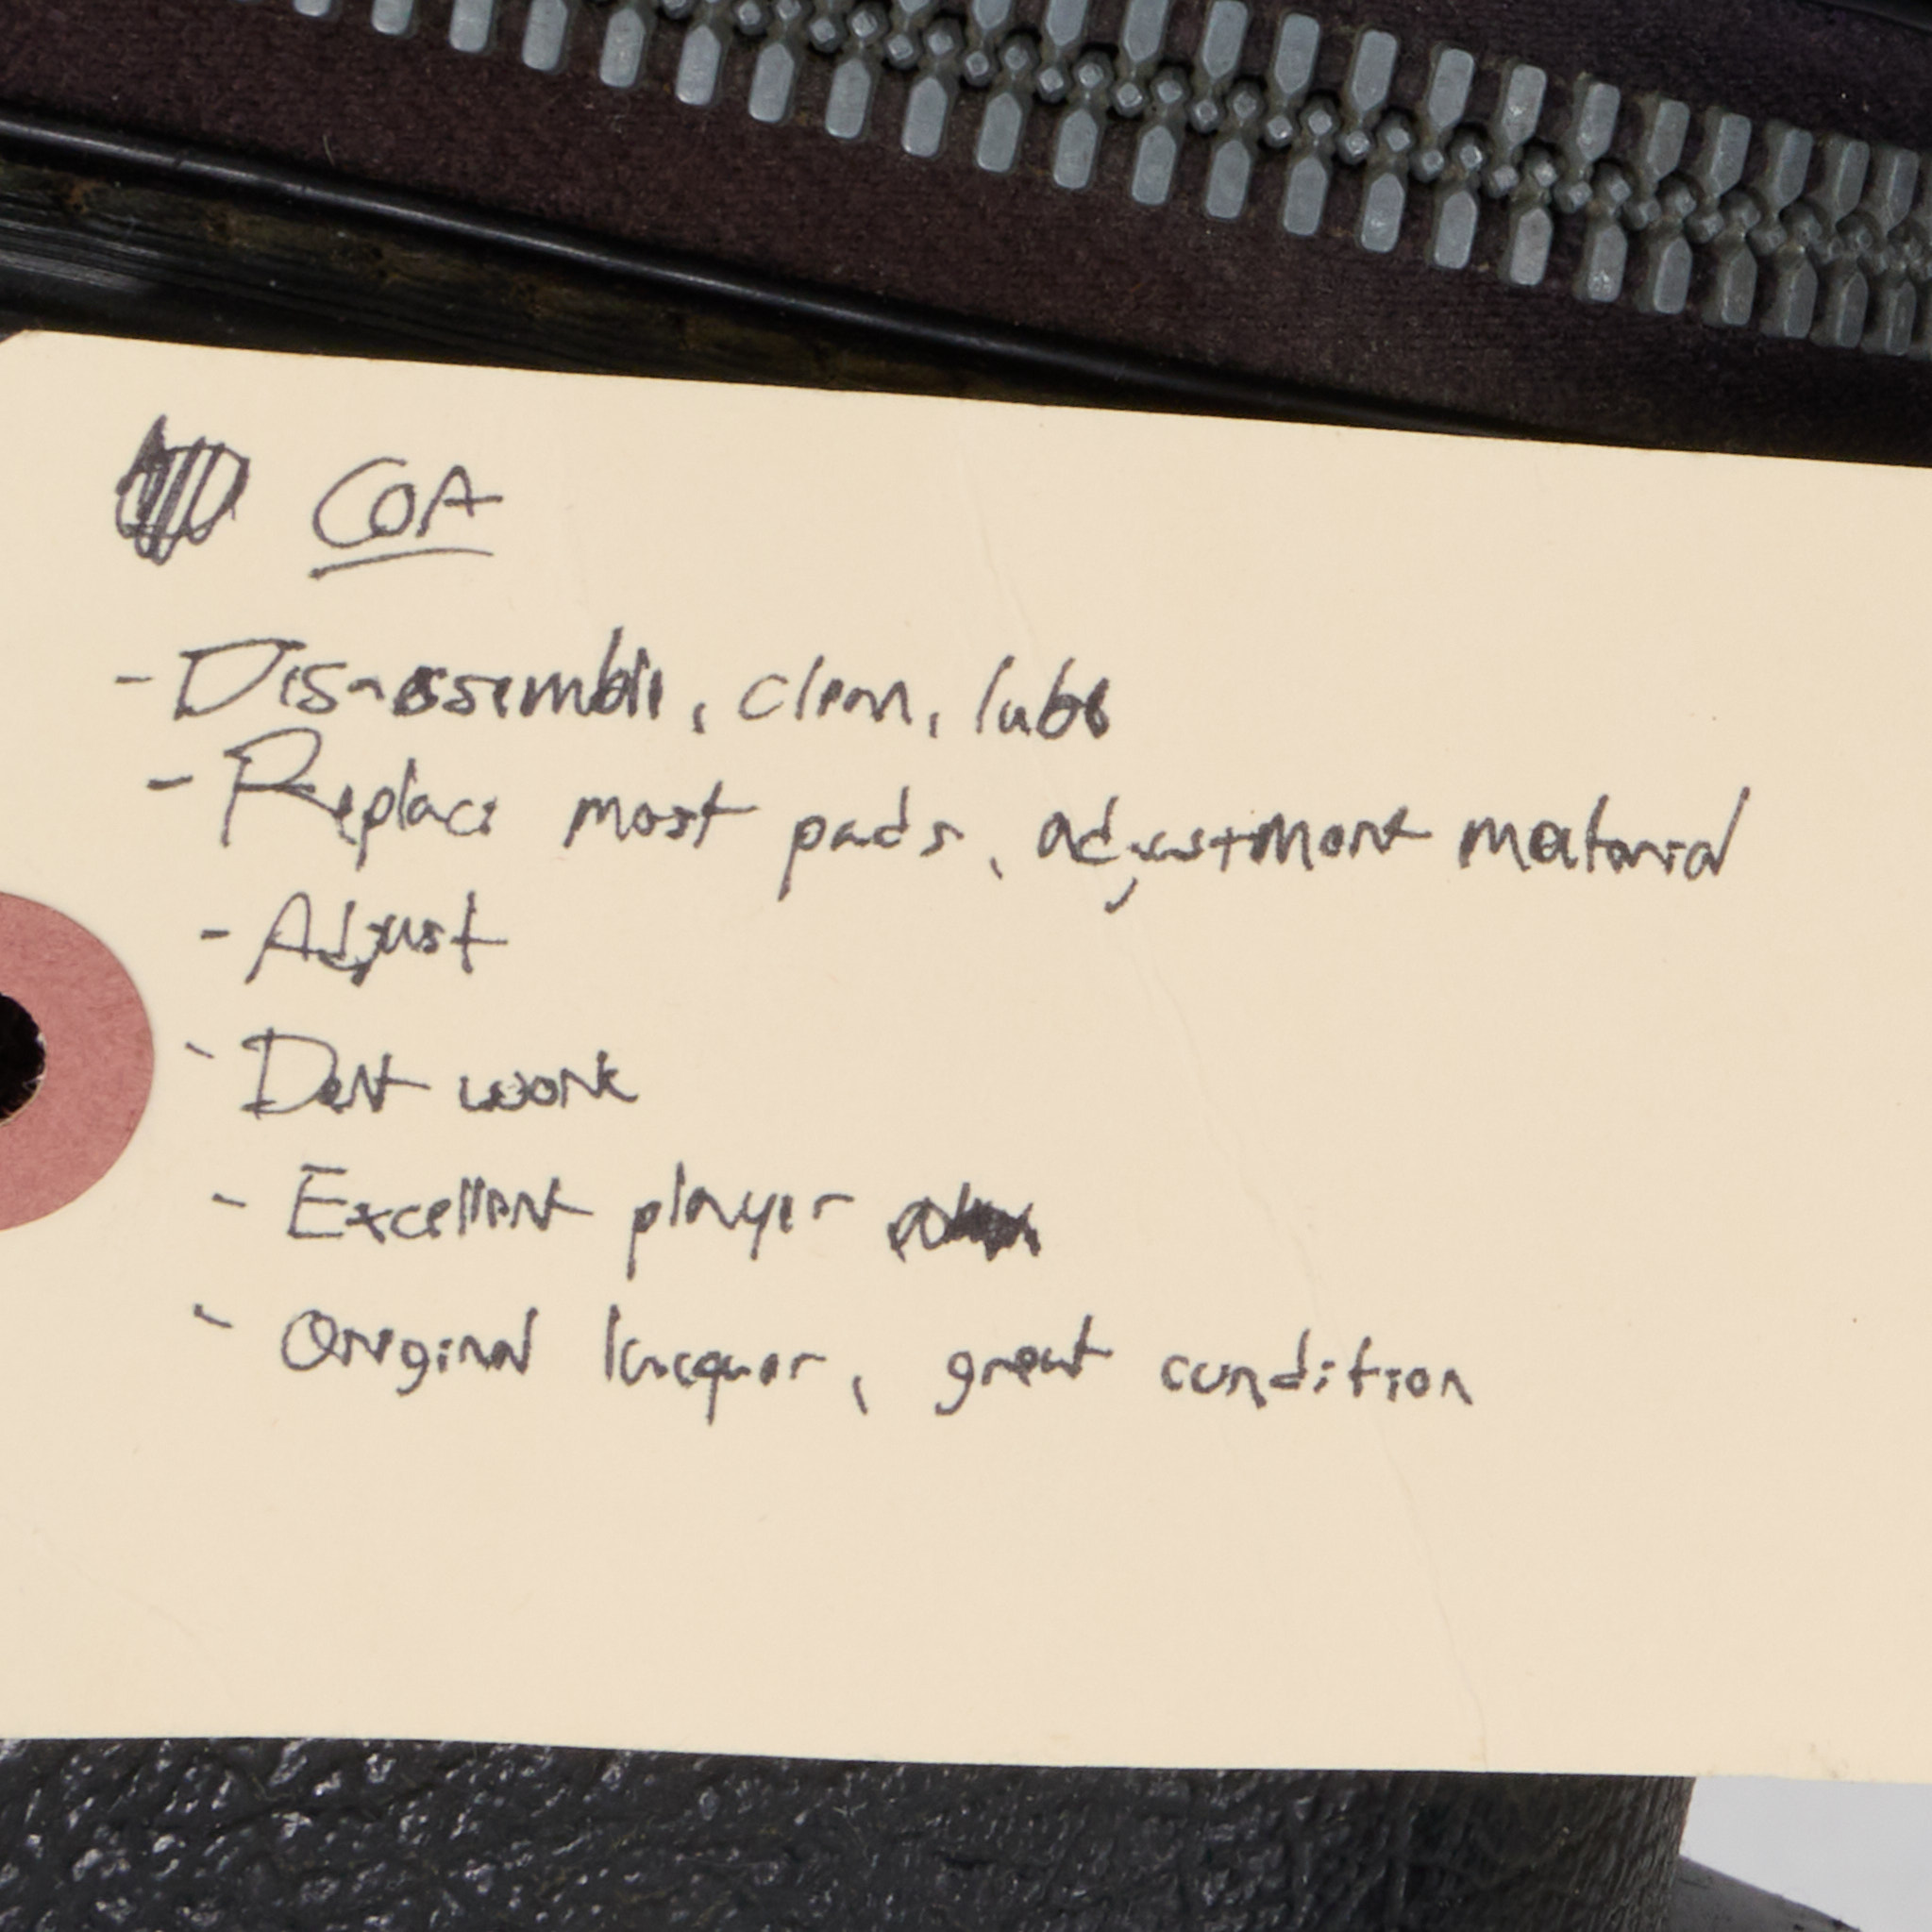 COA
- Dis-assemble, clean, lube
- Replace most pads, adjustment material
- Adjust
- Dent work
- Excellent player
- Original lacquer, great condition